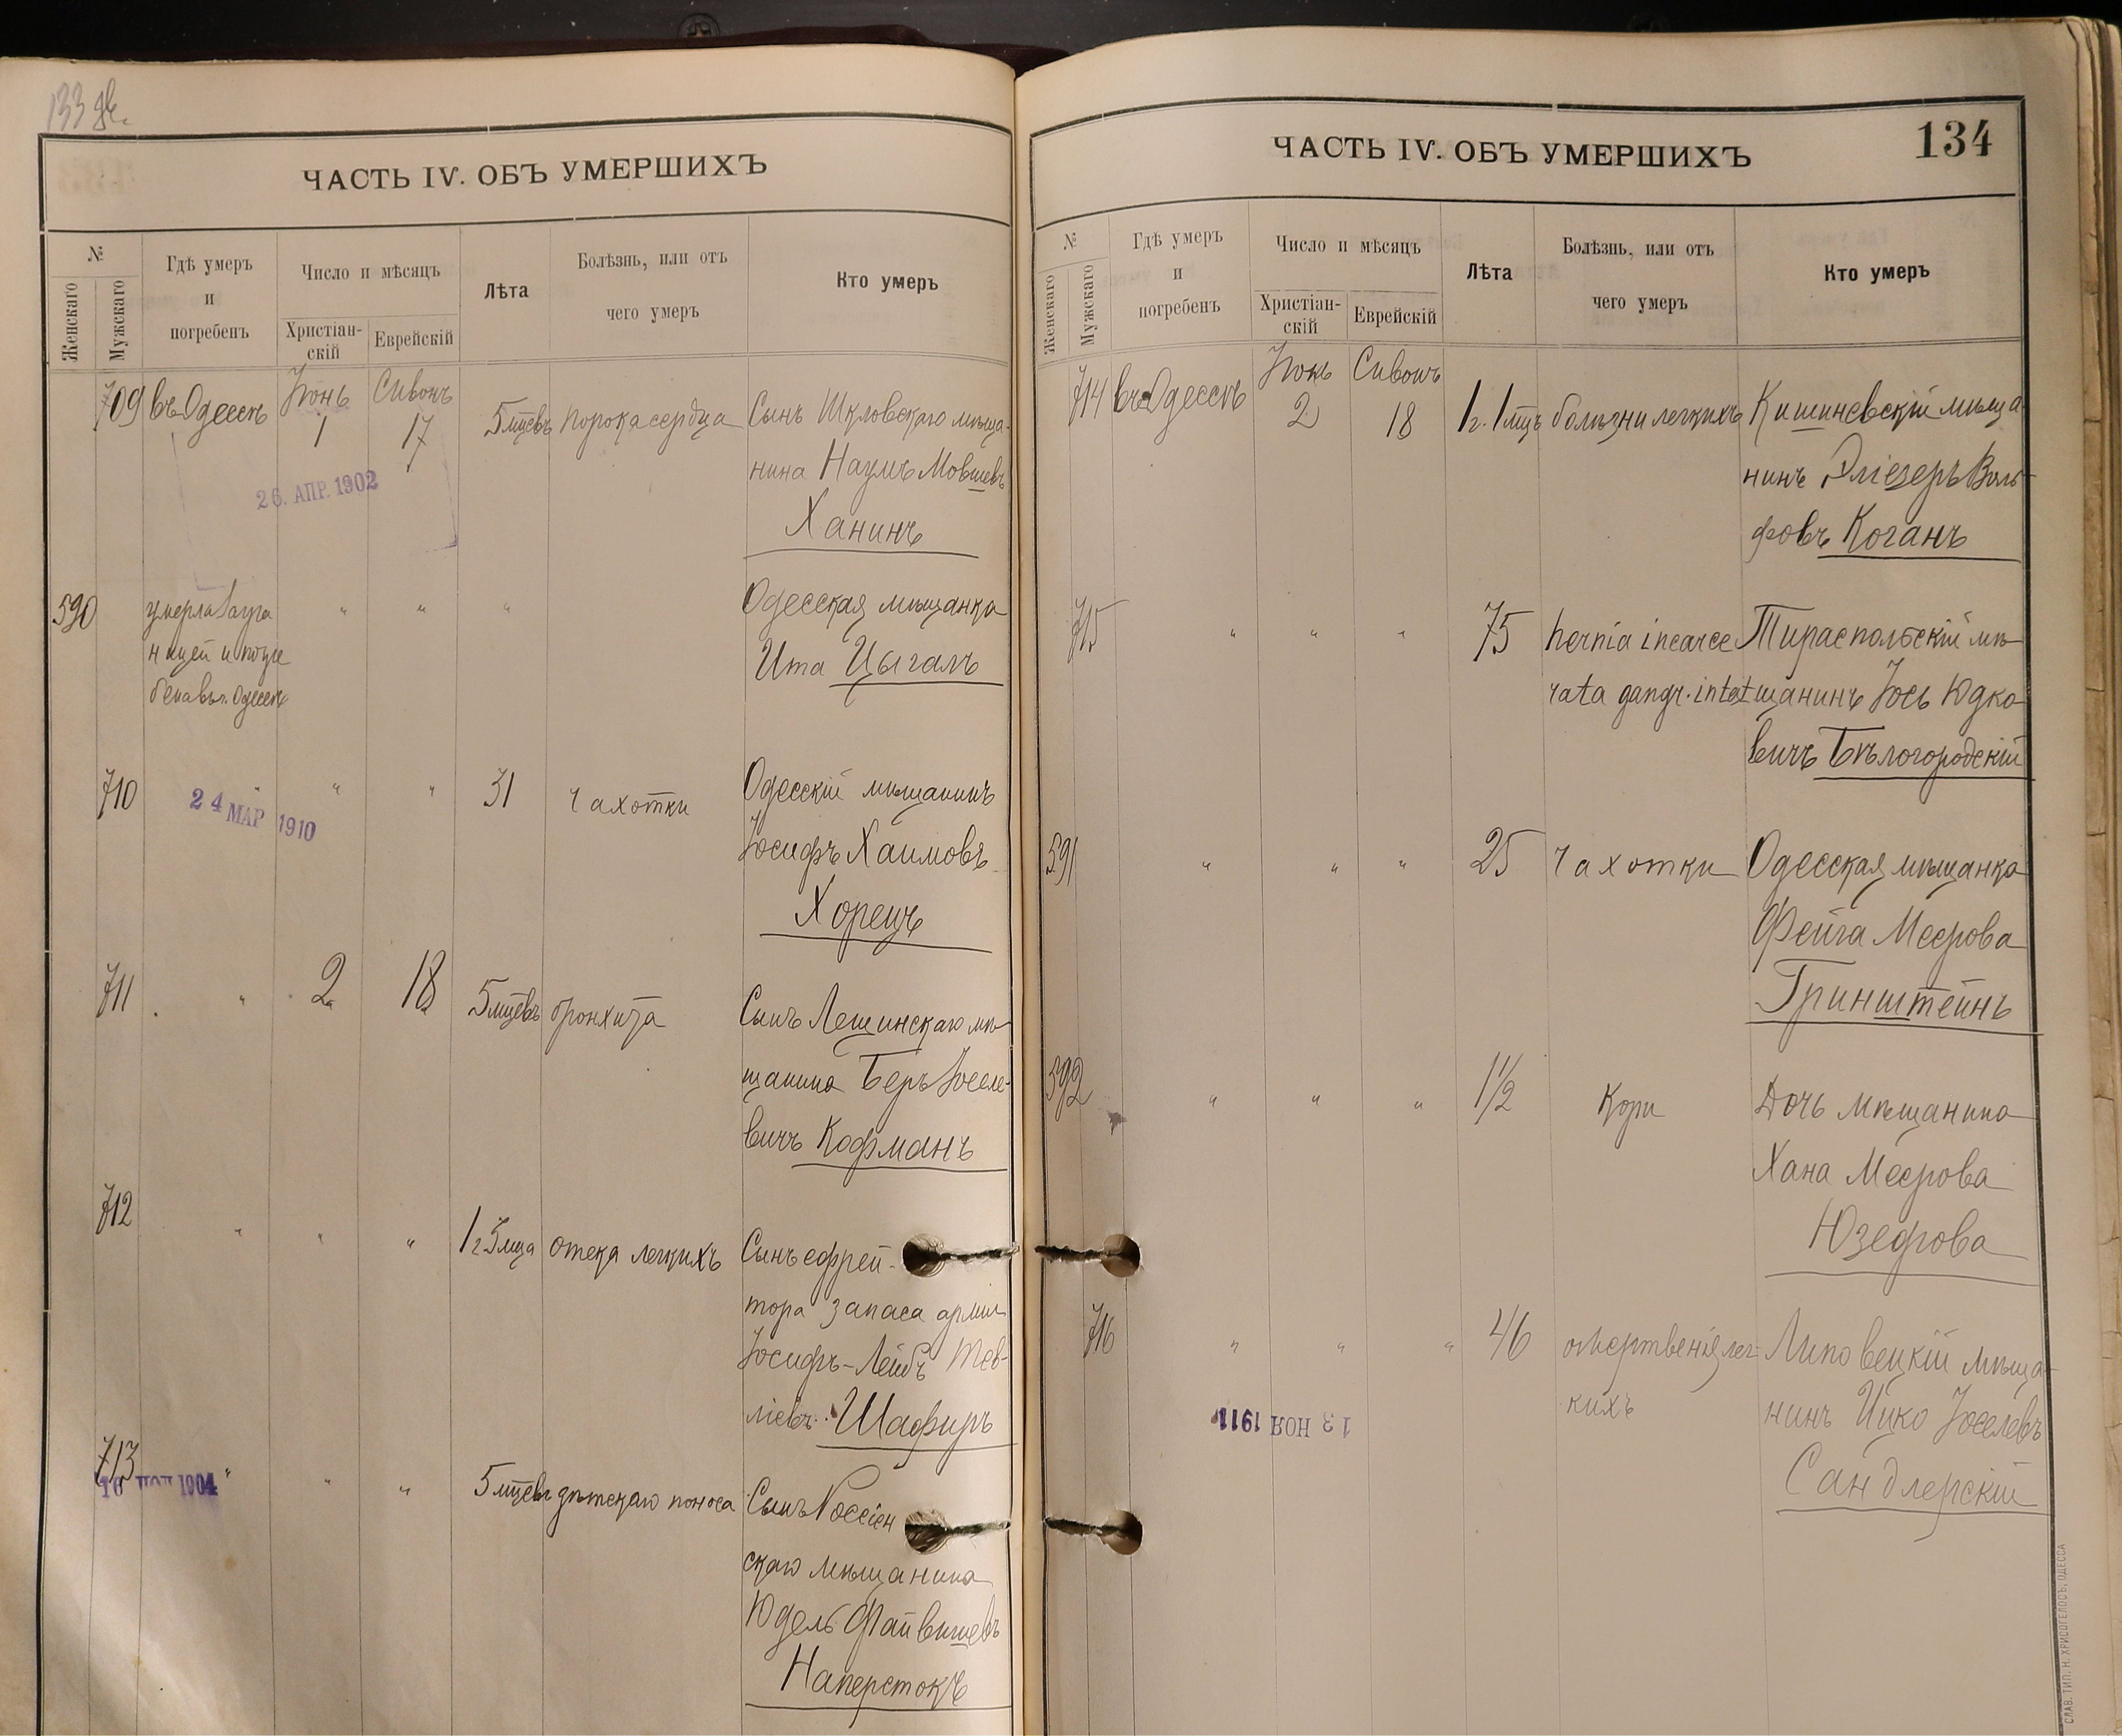 ЧАСТЬ IV. ОБЪ УМЕРШИХЪ
№
Женскаго
Мужскаго
Гдѣ умеръ
и
погребенъ
Число и мѣсяцъ
Христіан-
скій
Еврейскій
Лѣта
Болѣзнь, или отъ
чего умеръ
Кто умеръ
709 въ Одессѣ Іюнь Сивонъ
1 17 5 мцевъ порока сердца Сынъ Шкловскаго мѣща-
нина Наумъ Мовшевъ
Ханинъ
26. АПР. 1902
590 умерла загра " " " Одесская мѣщанка
ницей и погре Ита Цыгалъ
бена въ г. Одессѣ
710 " " " 31 чахотки Одесскій мѣщанинъ
24 МАР 1910
Іосифъ Хаимовъ
Хорецъ
711 " 2 18 5 мцевъ бронхита Сынъ Лешинскаго мѣ
щанина Беръ Іоселе-
вичъ Кофманъ
712 " " " 1 г 3 мца отека легкихъ Сынъ ефрей-
тора запаса арміи
Іосифъ-Лейбъ Тев-
ліевъ Шафиръ
713 " " " 5 мцевъ дѣтскаго поноса Сынъ Россіен
1904
скаго мѣщанина
Юдель Файвишевъ
Наперстокъ
134
ЧАСТЬ IV. ОБЪ УМЕРШИХЪ
№
Женскаго
Мужскаго
Гдѣ умеръ
и
погребенъ
Число и мѣсяцъ
Христіан-
скій
Еврейскій
Лѣта
Болѣзнь, или отъ
чего умеръ
Кто умеръ
714 въ Одессѣ Іюнь Сивонъ
2 18 1 г. 1 мцъ болѣзни легкихъ Кишиневскій мѣща
нинъ Эліезеръ Воль-
фовъ Коганъ
715 " " " 75 hernia incarce Тираспольскій мѣ
rata gangr. intest щанинъ Іось Юдко
вичъ Бѣлогородскій
591 " " " 25 чахотки Одесская мѣщанка
Фейга Меерова
Гринштейнъ
592 " " " 1 1/2 Кори Дочь мѣщанина
Хана Меерова
Юзефова
716 " " " 46 омертвенія лег- Липовецкій мѣща-
кихъ нинъ Ицко Іоселевъ
Сандлерскій
13 НОЯ 1911
СЛАВ. ТИП. Н. ХРИСОГЕЛОСЪ, ОДЕССА